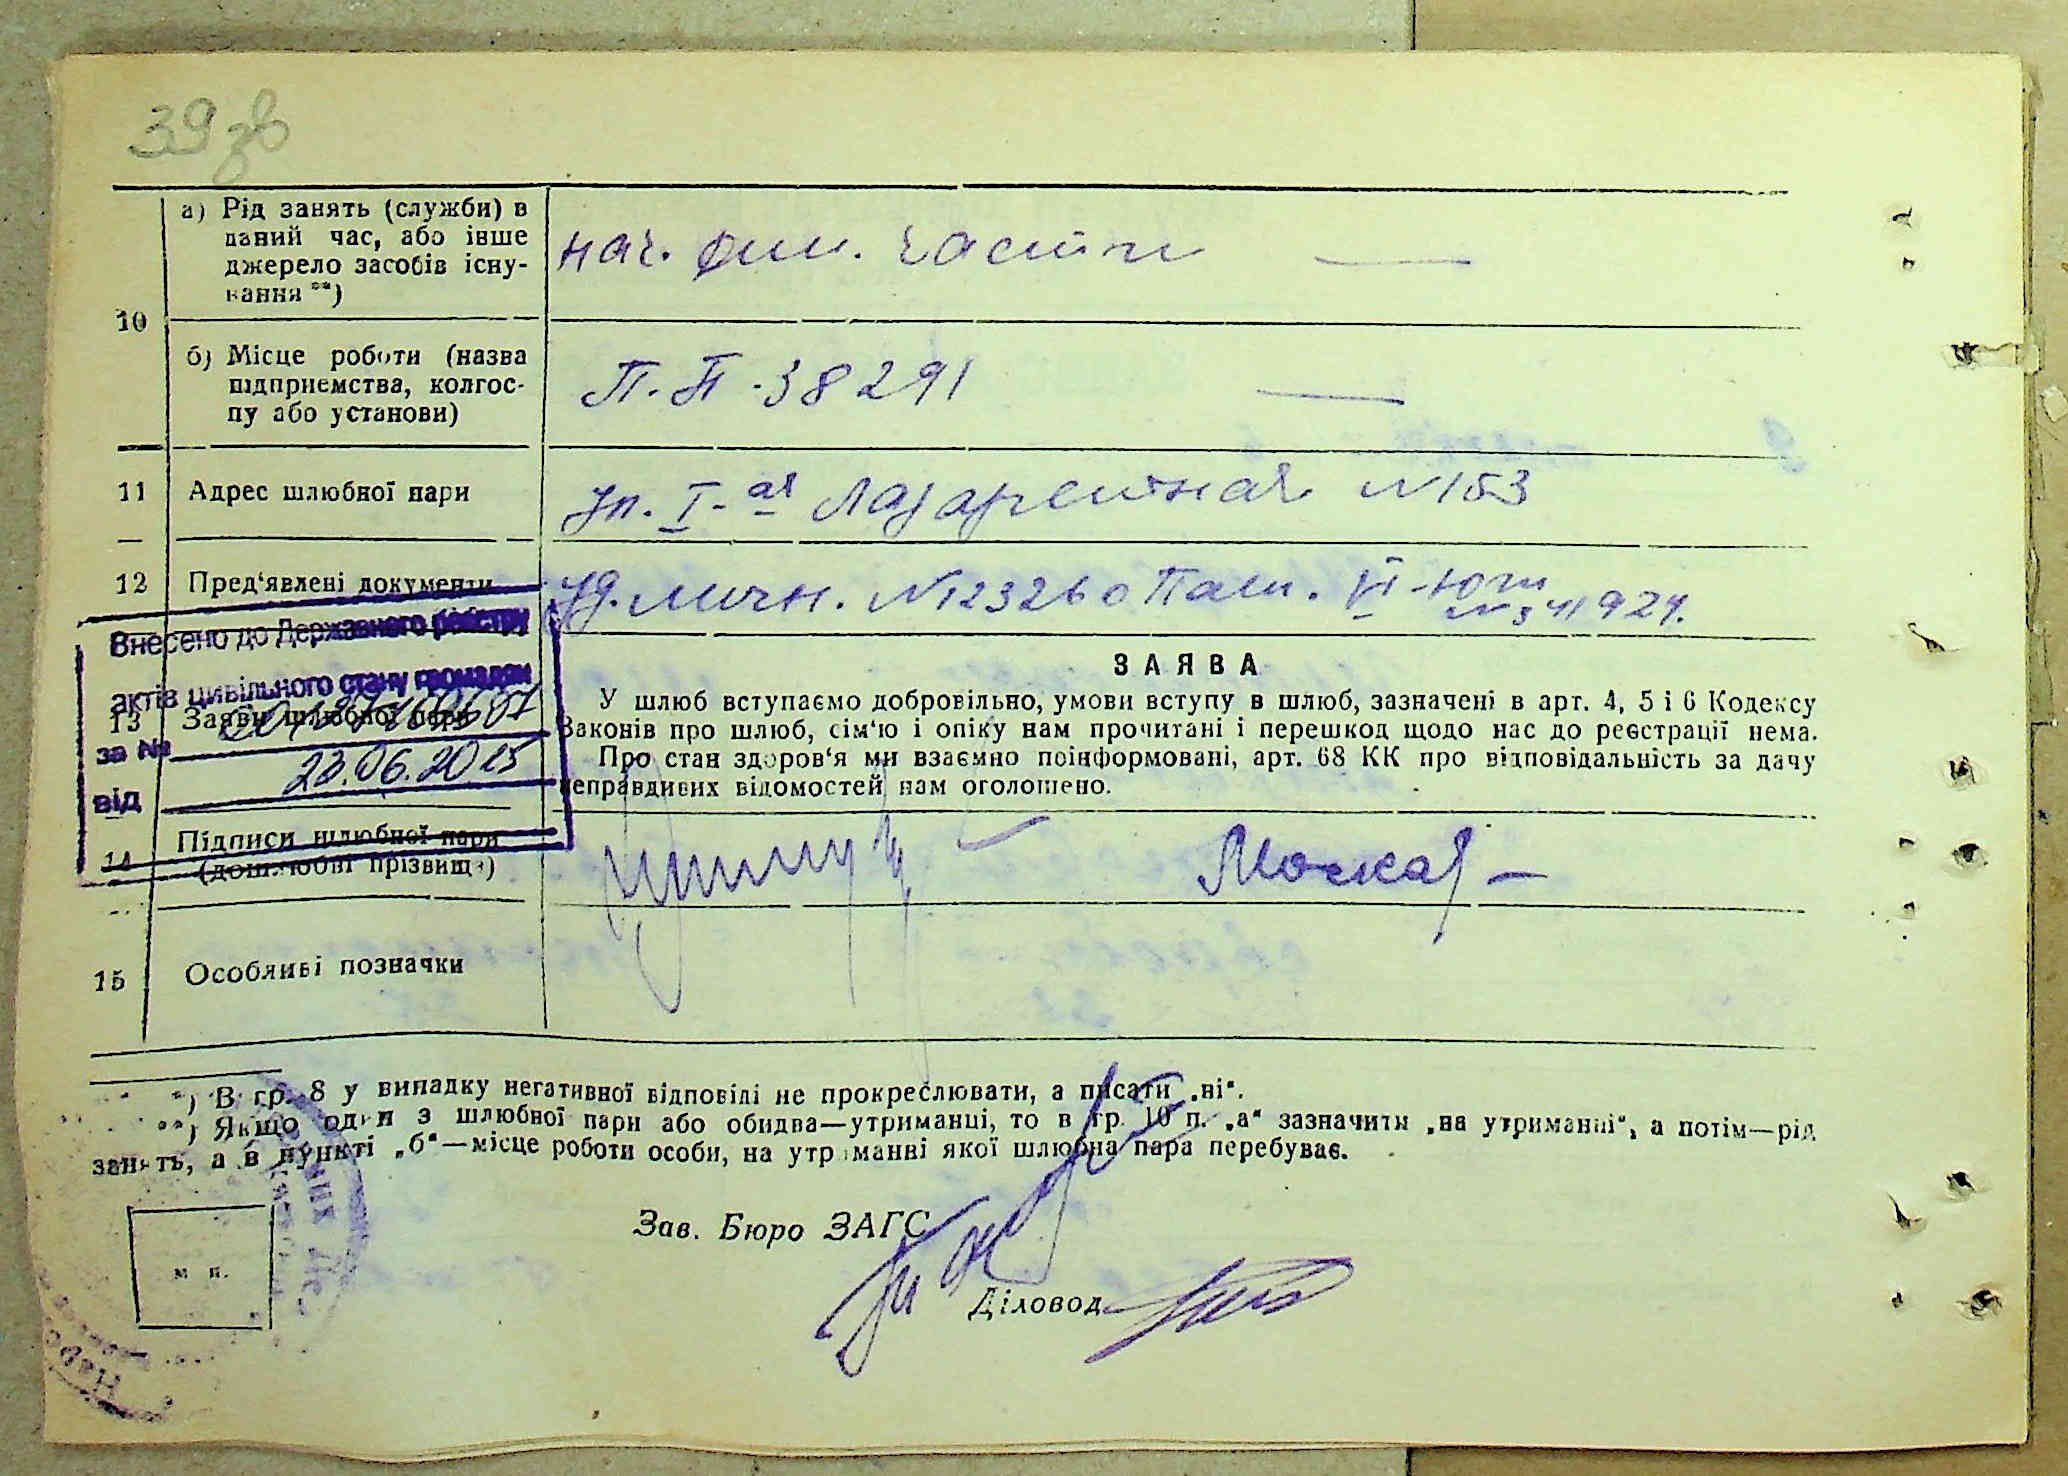 39 зв
а) Рід занять (служби) в
даний час, або інше
джерело засобів існу-
вання **)
нач. фин. части —
10
б) Місце роботи (назва
підприємства, колгос-
пу або установи)
П.П. 38291 —
11 Адрес шлюбної пари
ул. I-ая Лазаретная N 153
12 Пред'явлені документи
Уд. личн. N 12326 о Пасп. VI-ЮЩ
N 541924.
Внесено до Державного реєстру
актів цивільного стану громадян
за №
23.06.2015
від
13 Заяви шлюбної пари
ЗАЯВА
У шлюб вступаємо добровільно, умови вступу в шлюб, зазначені в арт. 4, 5 і 6 Кодексу
Законів про шлюб, сім'ю і опіку нам прочитані і перешкод щодо нас до реєстрації нема.
Про стан здоров'я ми взаємно поінформовані, арт. 68 КК про відповідальність за дачу
неправдивих відомостей нам оголошено.
14 Підписи шлюбної пари
(дошлюбні прізвища)
15 Особливі позначки
*) В гр. 8 у випадку негативної відповіді не прокреслювати, а писати „ні".
**) Якщо один з шлюбної пари або обидва—утриманці, то в гр. 10 п. „а" зазначити „на утриманні", а потім—рід
занять, а в пункті „б"—місце роботи особи, на утриманні якої шлюбна пара перебуває.
Зав. Бюро ЗАГС
м п.
Діловод